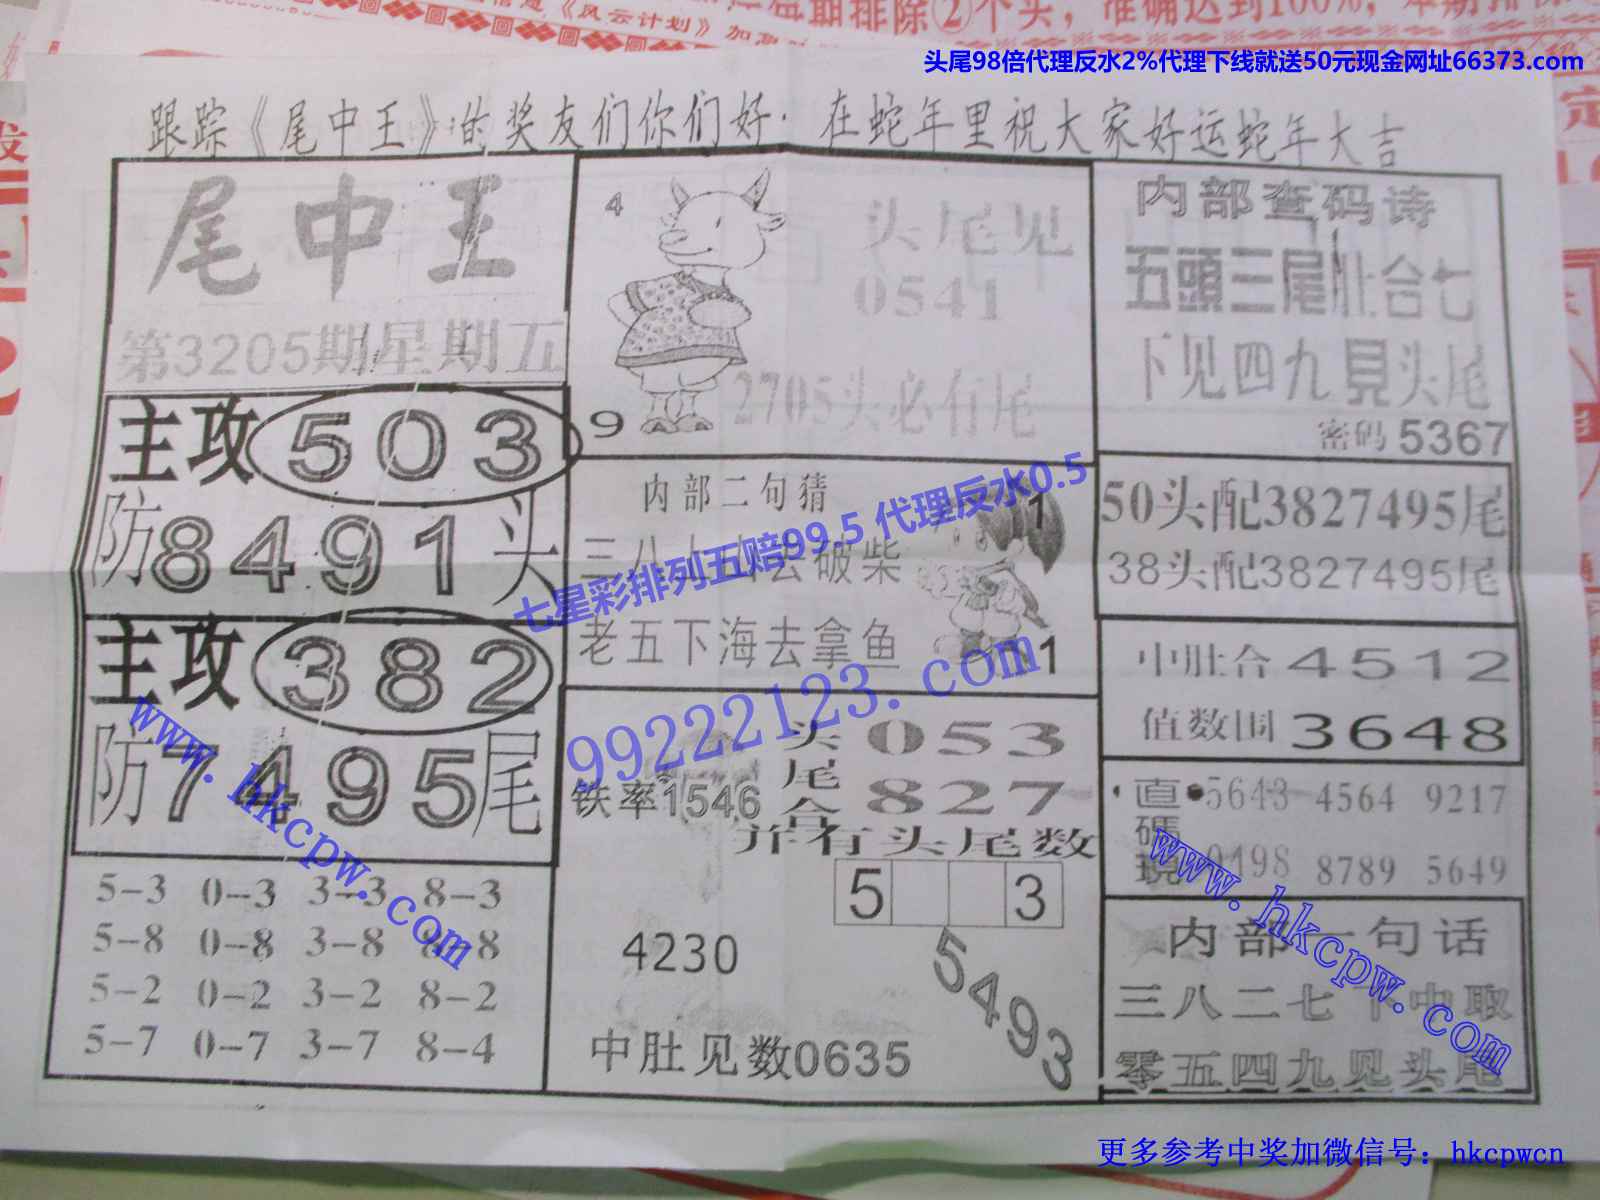 信息《风云计划》加
期排除②个头，准确达到100%，本期排除
头尾98倍代理反水2%代理下线就送50元现金网址66373.com
跟踪《尾中王》的奖友们你们好·在蛇年里祝大家好运蛇年大吉
尾中王
第3205期星期五
主攻503
防8491头
主攻382
防7495尾
5-3 0-3 3-3 8-3
5-8 0-8 3-8 8-8
5-2 0-2 3-2 8-2
5-7 0-7 3-7 8-4
4
头尾见
0541
2705头必有尾
9
内部二句猜
去破柴
老五下海去拿鱼
1
1
七星彩排列五赔99.5 代理反水0.5
99222123.com
头尾合
053
827
铁率1546
并有头尾数
5 3
4230
5493
中肚见数0635
内部查码诗
五頭三尾肚合七
下见四九見头尾
密码5367
50头配3827495尾
38头配3827495尾
中肚合4512
值数围3648
直碼現
5643 4564 9217
0498 8789 5649
内部一句话
三八二七下中取
零五四九见头尾
www.hkcpw.com
www.hkcpw.com
更多参考中奖加微信号：hkcpwcn